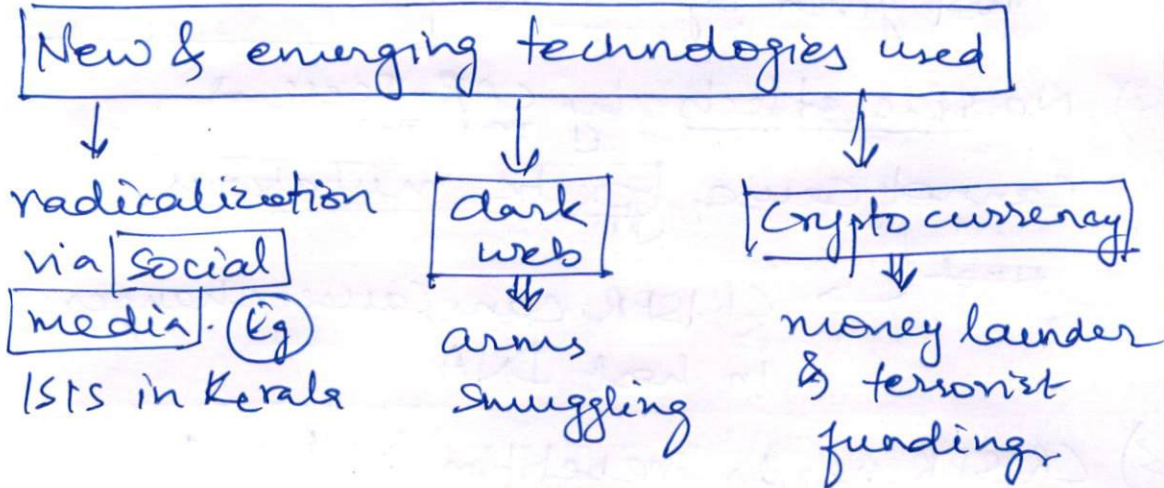 New & emerging technologies used
radicalization
via social
media. Eg
ISIS in Kerala
dark
web
arms
smuggling
cryptocurrency
money launder
& terrorist
funding